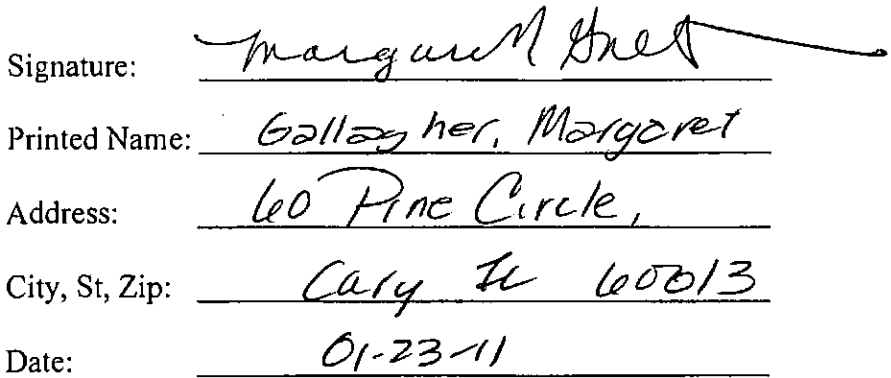 Signature: Margaret
Printed Name: Gallagher, Margaret
Address: 60 Pine Circle,
City, St, Zip: Cary IL 60013
Date: 01-23-11